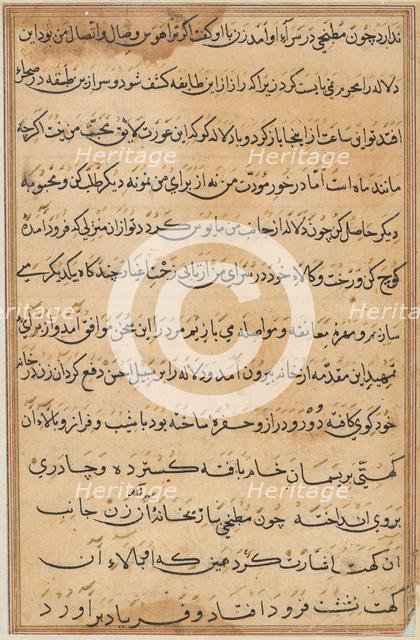 ندارد چون مطبخی در سرای او آمد زن با او گفت اگر ترا هوس وصال و اتصال من بود این
دلاله را محرم نمی بایست کرد زیرا که راز از این طایفه کشف شود و سر از این طبقه در صحرا
افتد تو این ساعت از اینجا باز گرد و با دلاله گو که این عورت لائق محبت من نیست اگرچه
مانند ماه است اما در خور مودت من نه از برای من نمونه دیگر طلب کن و محبوبه
دیگر حاصل کن چون دلاله از جانب من مایوس گردد تو از ان منزلی که فرود آمده
کوچ کن و رخت و کالاء خود در سرای من از تا بی زحمت اغیار چند گاه بیکدیگر می
سازیم و مهره معانقه و مواصله می بازیم مرد را این سخن موافق آمد و از برای
تمهید این مقدمه از خانه بیرون آمد و دلاله را بر سبیل احسن دفع کرد ان زن در خانه
خود کوی کافته دور و دراز و حفره ساخته بود با شیب و فراز و بالاء آن
کهتی بریسمان خام بافته گسترده و چادری
بروی انداخته چون مطبخی باز بخانه آن زن جانب
ان کهت اشارت کرد همین که او بالاء آن
کهت نشست فرود افتاد و فریاد برآورد
Heritage
Heritage
Heritage
Heritage
Heritage
Heritage
Heritage
Heritage